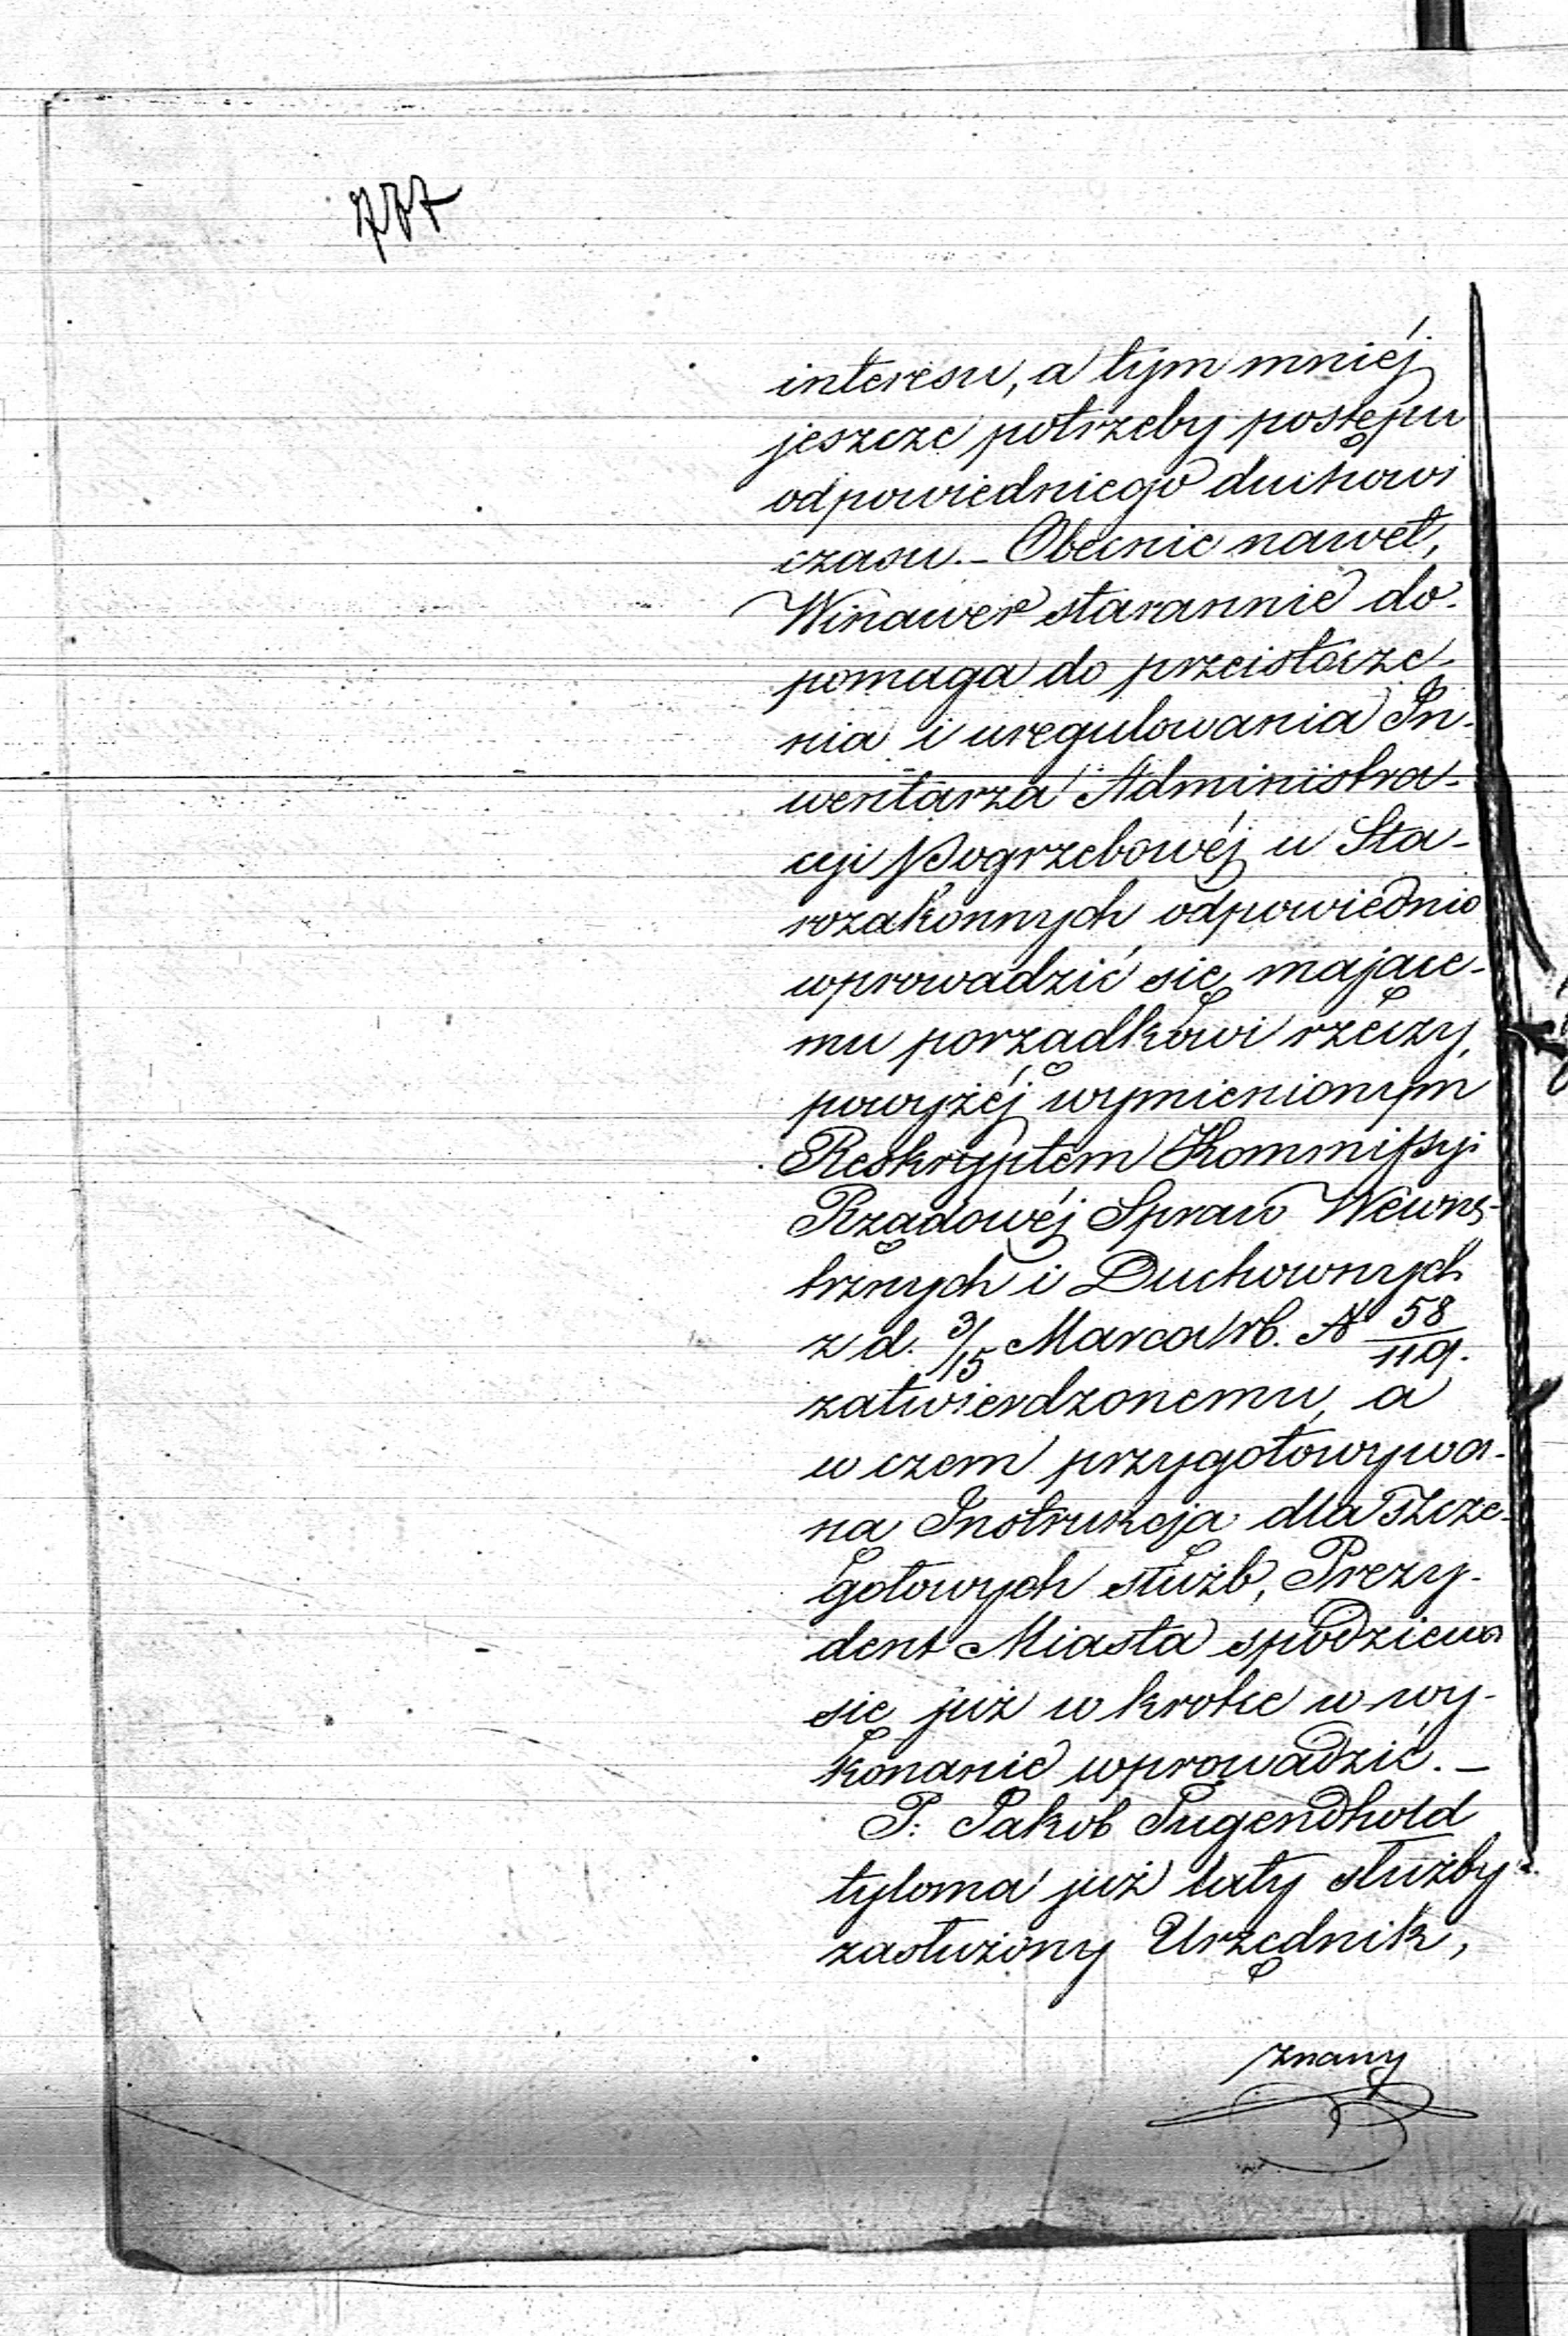 777
interesu, a tym mniéj
jeszcze potrzeby postępu
odpowiedniego duchowi
czasu. – Obecnie nawet,
Winawer starannie do-
pomaga do przeistocze-
nia i uregulowania In-
wentarza Administra-
cyi Pogrzebowéj u Sta-
rozakonnych odpowiednio
wprowadzić się mające-
mu porządkowi rzeczy,
powyżéj wymienionym
Reskryptem Kommissyi
Rządowéj Spraw Wewnę-
trznych i Duchownych
z d. 3/15 Marca rb. № 58/119.
zatwierdzonemu, a
w czem przygotowywa-
na Instrukcja dla szcze-
gołowych służb, Prezy-
dent Miasta spodziewa
się już w krotce w wy-
konanie wprowadzić. –
P. Jakob Tugendhold
tyloma już laty służby
zasłużony Urzędnik,
znany